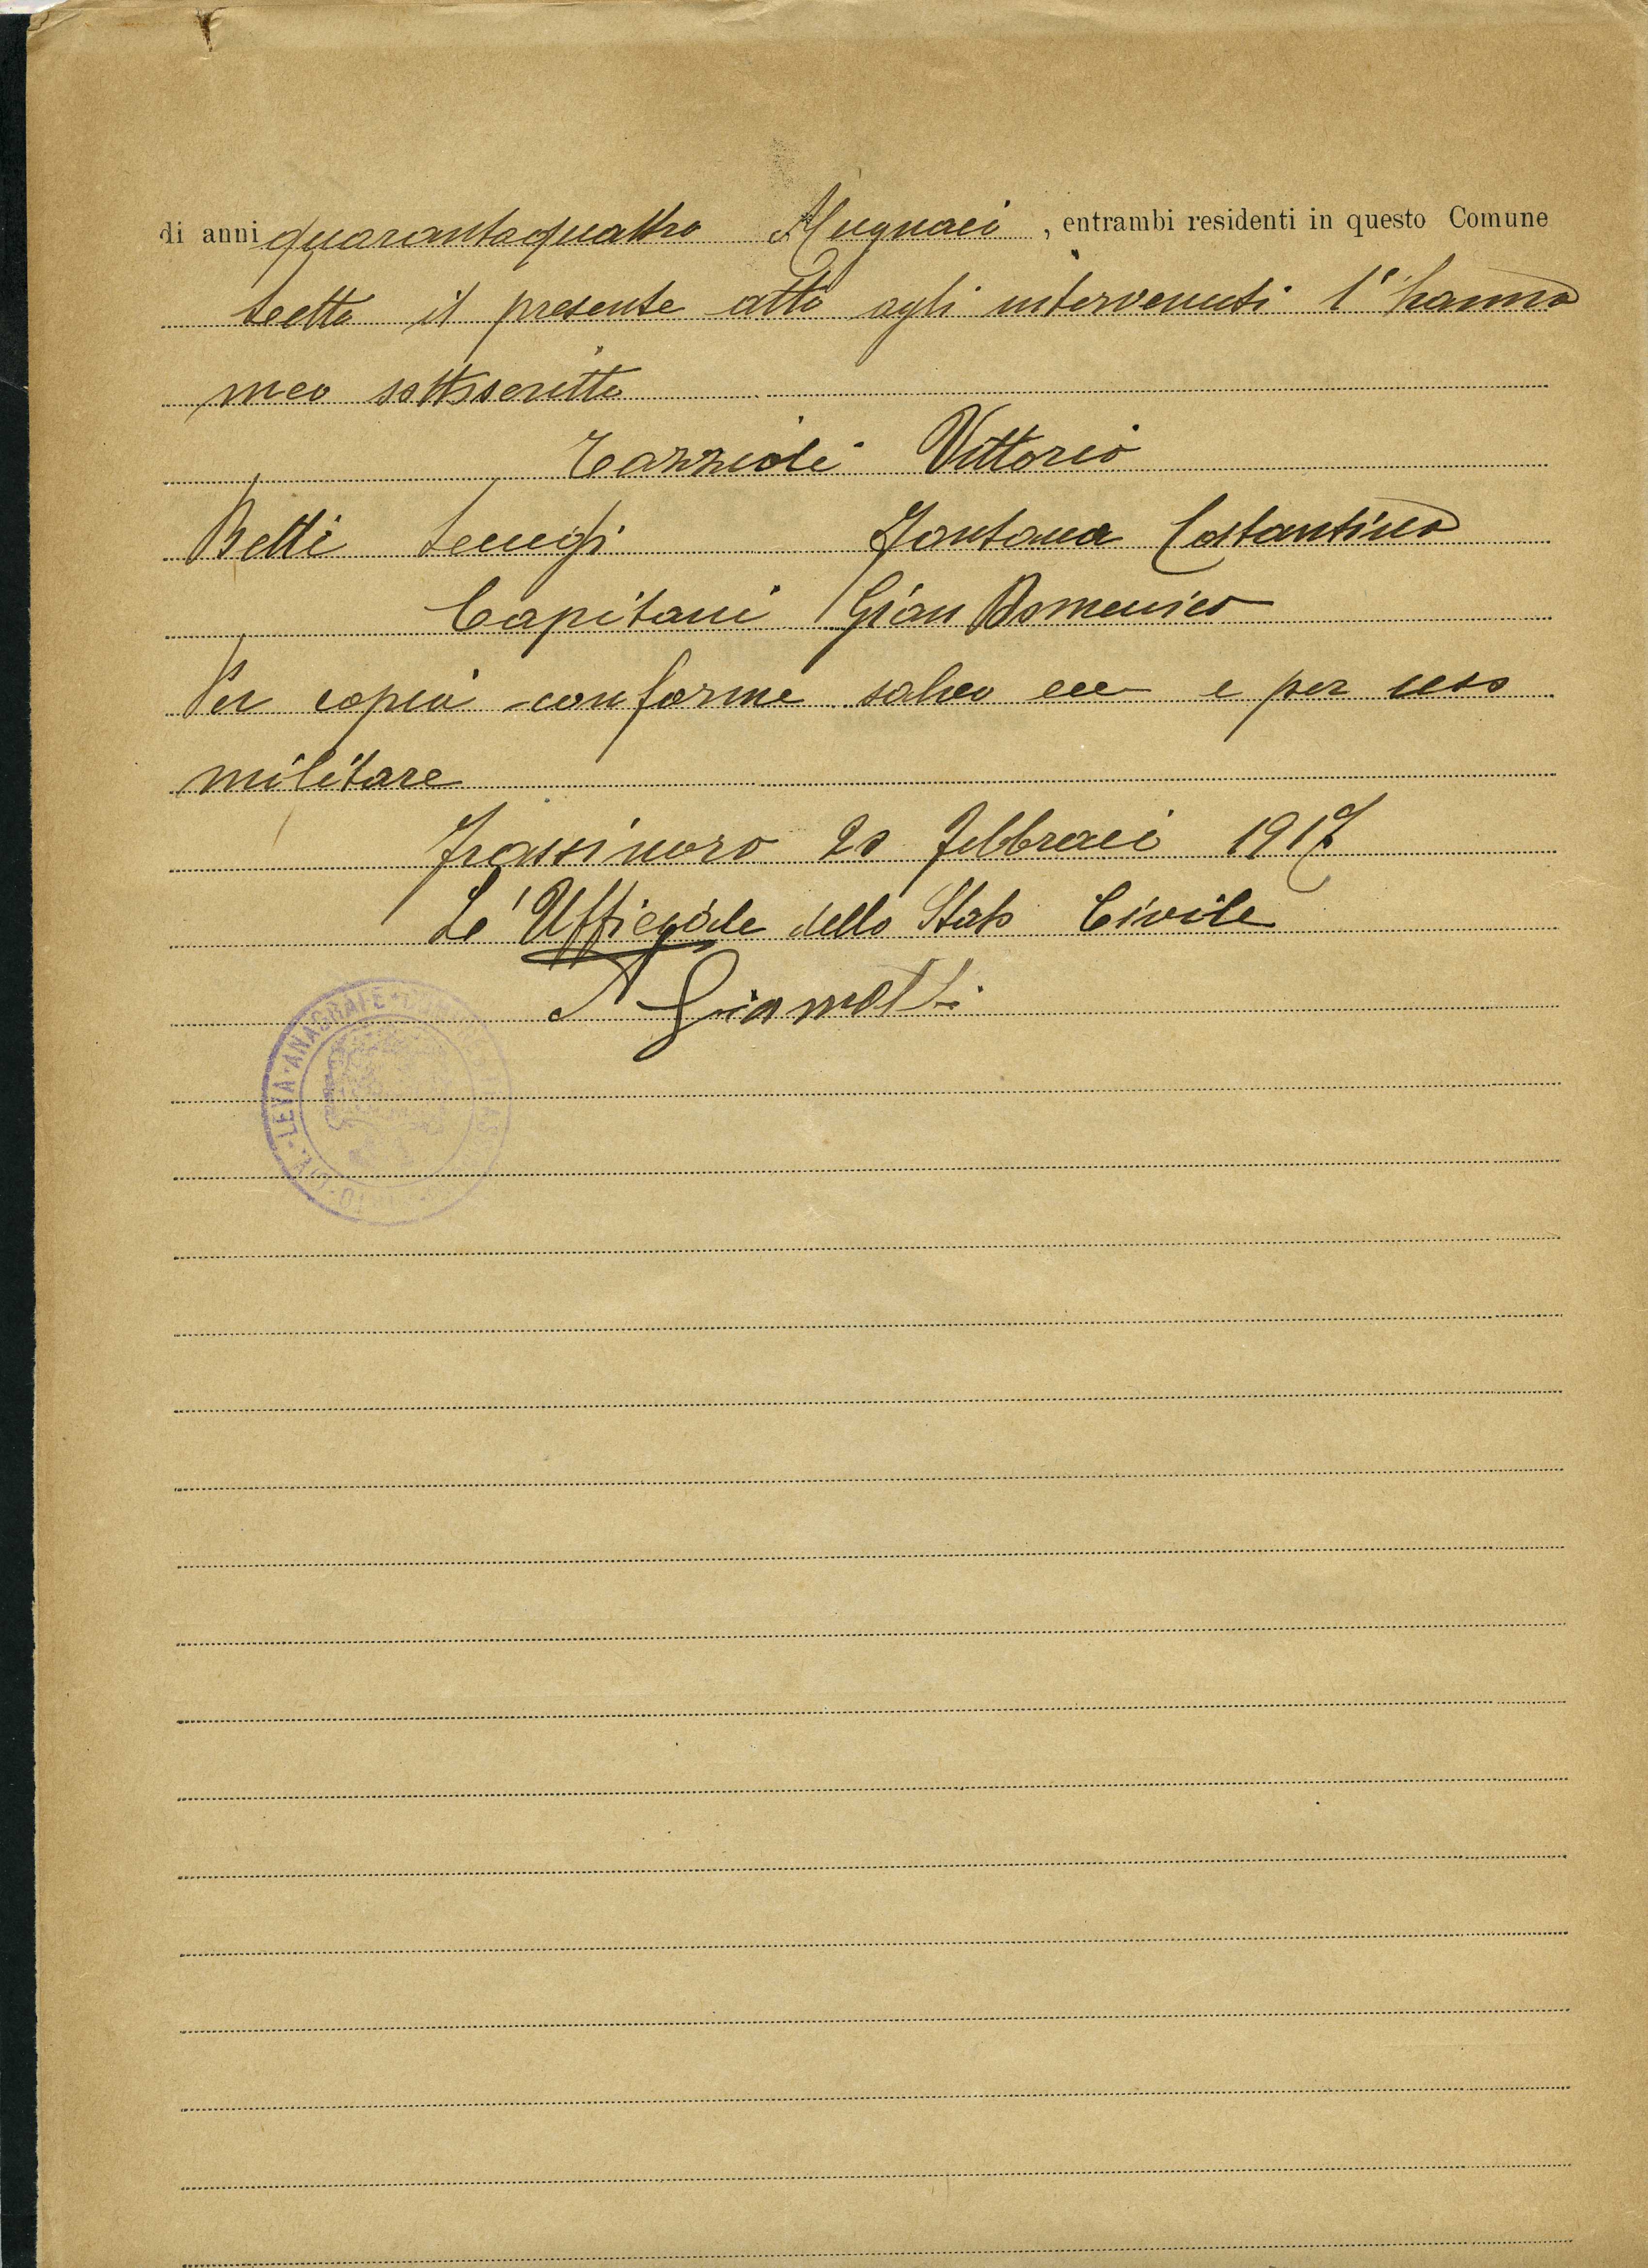 di anni quarantaquattro Mugnaio, entrambi residenti in questo Comune
Letto il presente atto agli intervenuti l'hanno
meco sottoscritto
Tazzioli Vittorio
Betti Luigi Fontana Costantino
Capitani Gian Domenico
Per copia conforme salvo ecc e per uso
militare
Frassinoro 20 Febbraio 1917
Le' Uffiziale dello Stato Civile
Giannotti
LEVA · ANAGRAFE